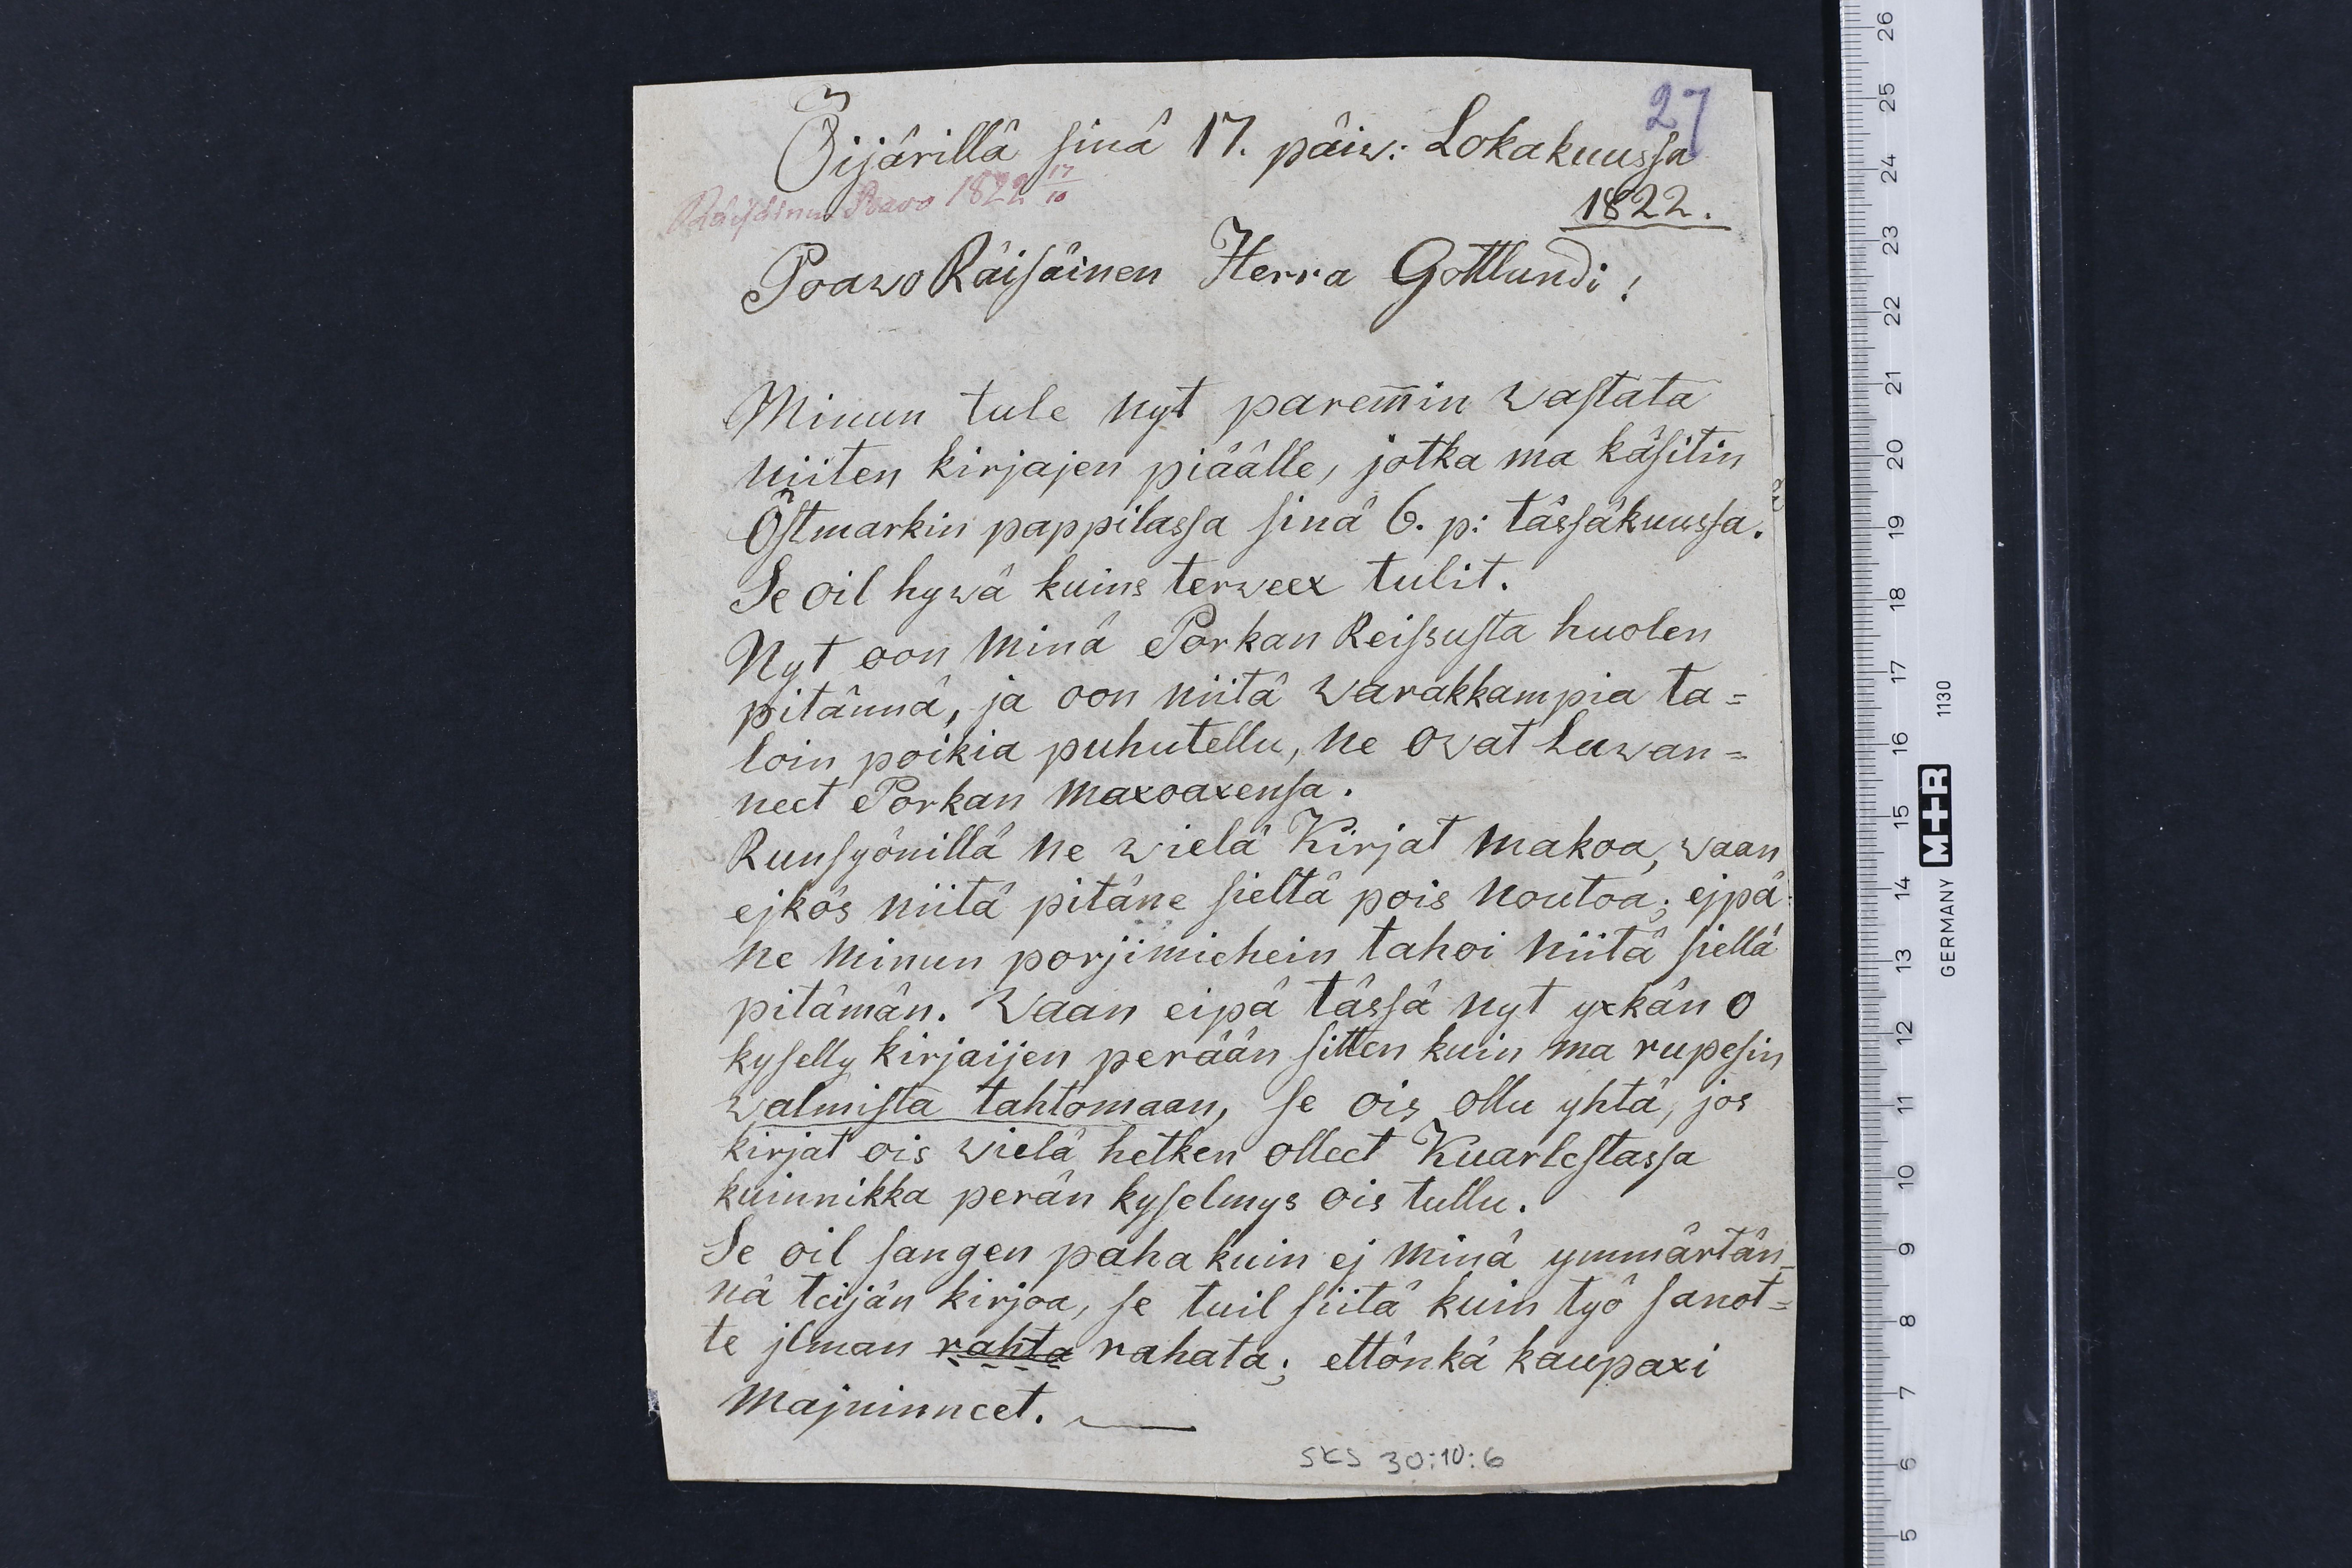 27
Öijärillä sinä 17. päiw: Lokakuussa
Räisäinen Poavo 1822 17/10
1822.
Poawo Räisäinen Herra Gottlundi!
Minun tule nyt parem̄in wastata
niiten kirjajen piäälle, jotka ma käsitin
Östmarkin pappilassa sinä 6. p: tässäkuussa.
Se oil hywä kuins terweex tulit.
Nyt oon minä Porkan Reissusta huolen
pitännä, ja oon niitä warakkampia ta=
loin poikia puhutellu, ne owat Luwan=
neet Porkan maxoaxensa.
Ruunsyönillä ne wielä Kirjat makoa, waan
ejkös niitä pitäne sieltä pois noutoa; ejpä=
ne minun porjimiehein tahoi niitä siellä
pitämän. Waan eipä tässä nyt yxkän o
kyselly kirjaijen perään sitten kuin ma rupesin
walmista tahtomaan, se ois ollu yhtä, jos
kirjat ois wielä hetken olleet Kuarlestassa
kuinnikka perän kyselmys ois tullu.
Se oil sangen paha kuin ej minä ymmärtän=
nä teijän kirjoa, se tuil siitä kuin työ sanot=
te jlman rahta rahata; ettönkä kaupaxi
majninneet.
SKS 30:10:6
26
25
24
23
22
21
20
19
18
17
16
15
14
13
12
11
10
9
8
7
6
5
GERMANY M+R 1130